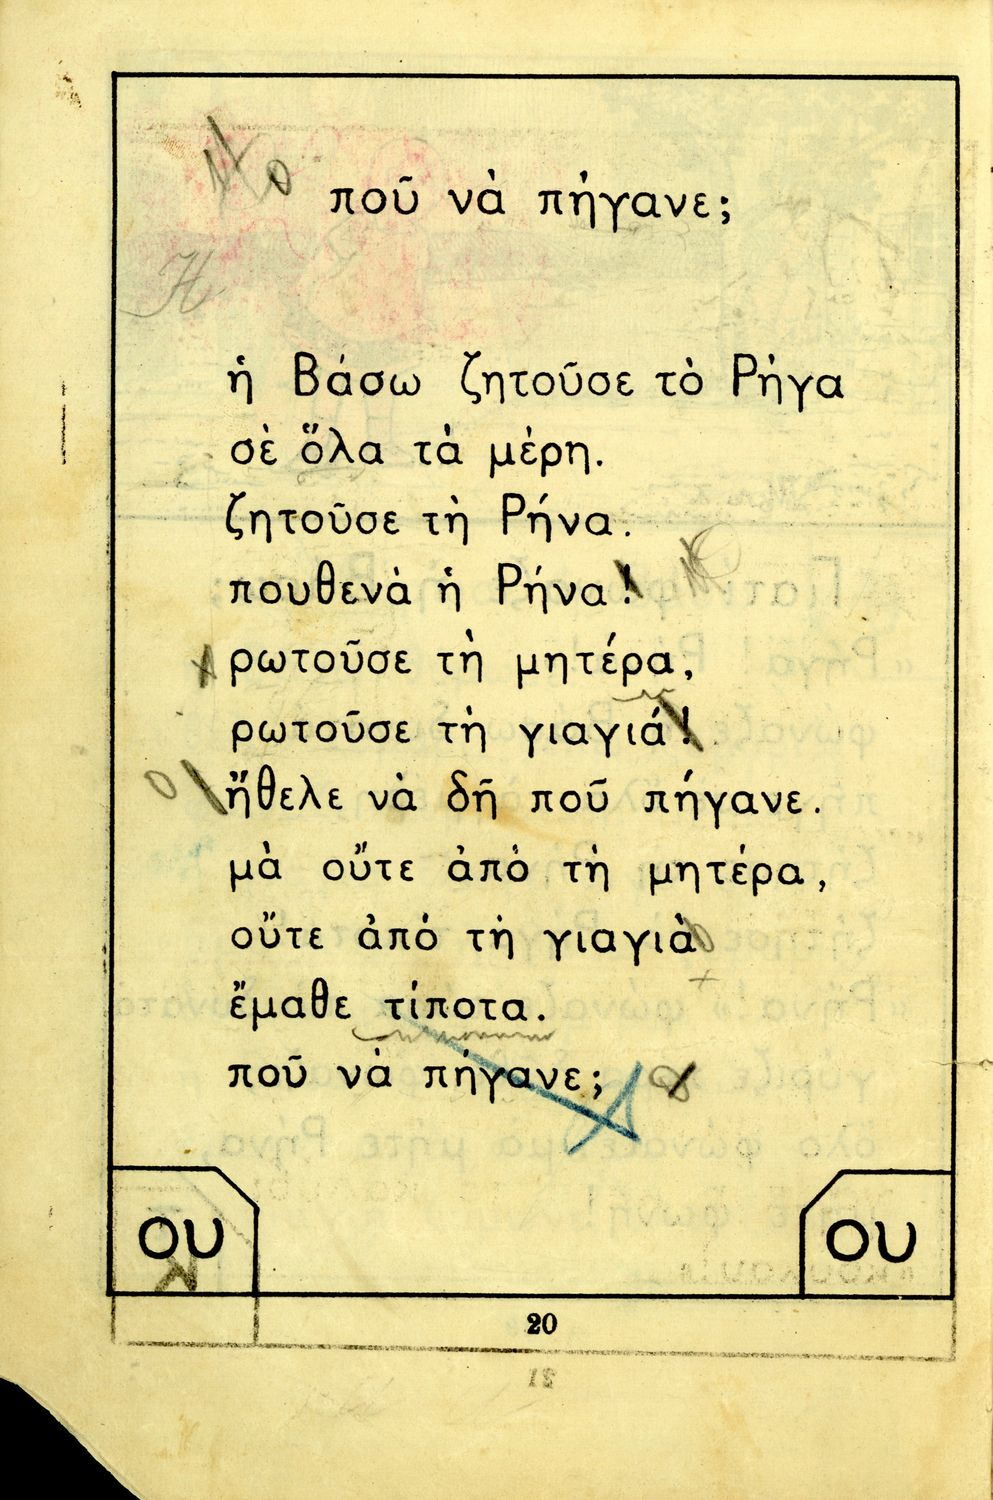 ποῦ νὰ πήγανε;
ἡ Βάσω ζητοῦσε τὸ Ρήγα
σὲ ὅλα τὰ μέρη.
ζητοῦσε τὴ Ρήνα.
πουθενὰ ἡ Ρήνα!
ρωτοῦσε τὴ μητέρα,
ρωτοῦσε τὴ γιαγιά!
ἤθελε νὰ δῆ ποῦ πήγανε.
μὰ οὔτε ἀπὸ τὴ μητέρα,
οὔτε ἀπὸ τὴ γιαγιὰ
ἔμαθε τίποτα.
ποῦ νὰ πήγανε;
ου ου
20